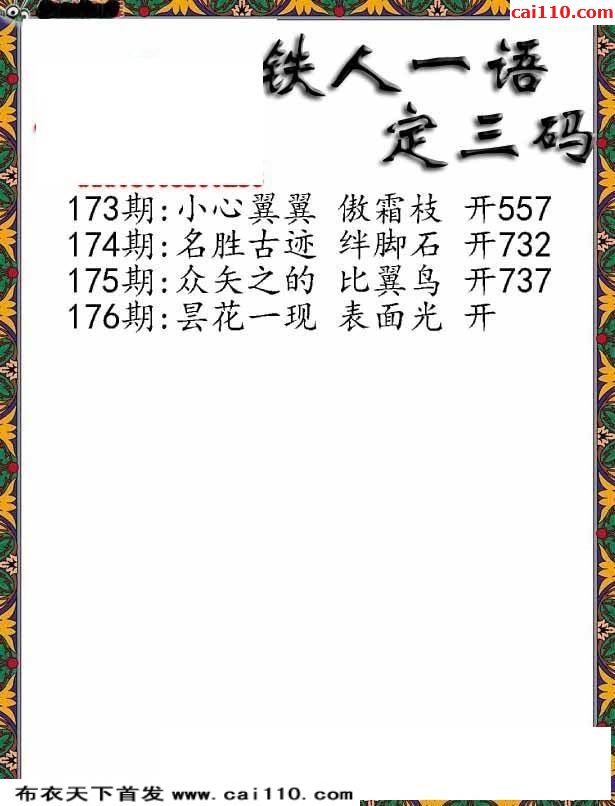 cai110.com
铁人一语
定三码
173期:小心翼翼 傲霜枝 开557
174期:名胜古迹 绊脚石 开732
175期:众矢之的 比翼鸟 开737
176期:昙花一现 表面光 开
布衣天下首发 www.cai110.com